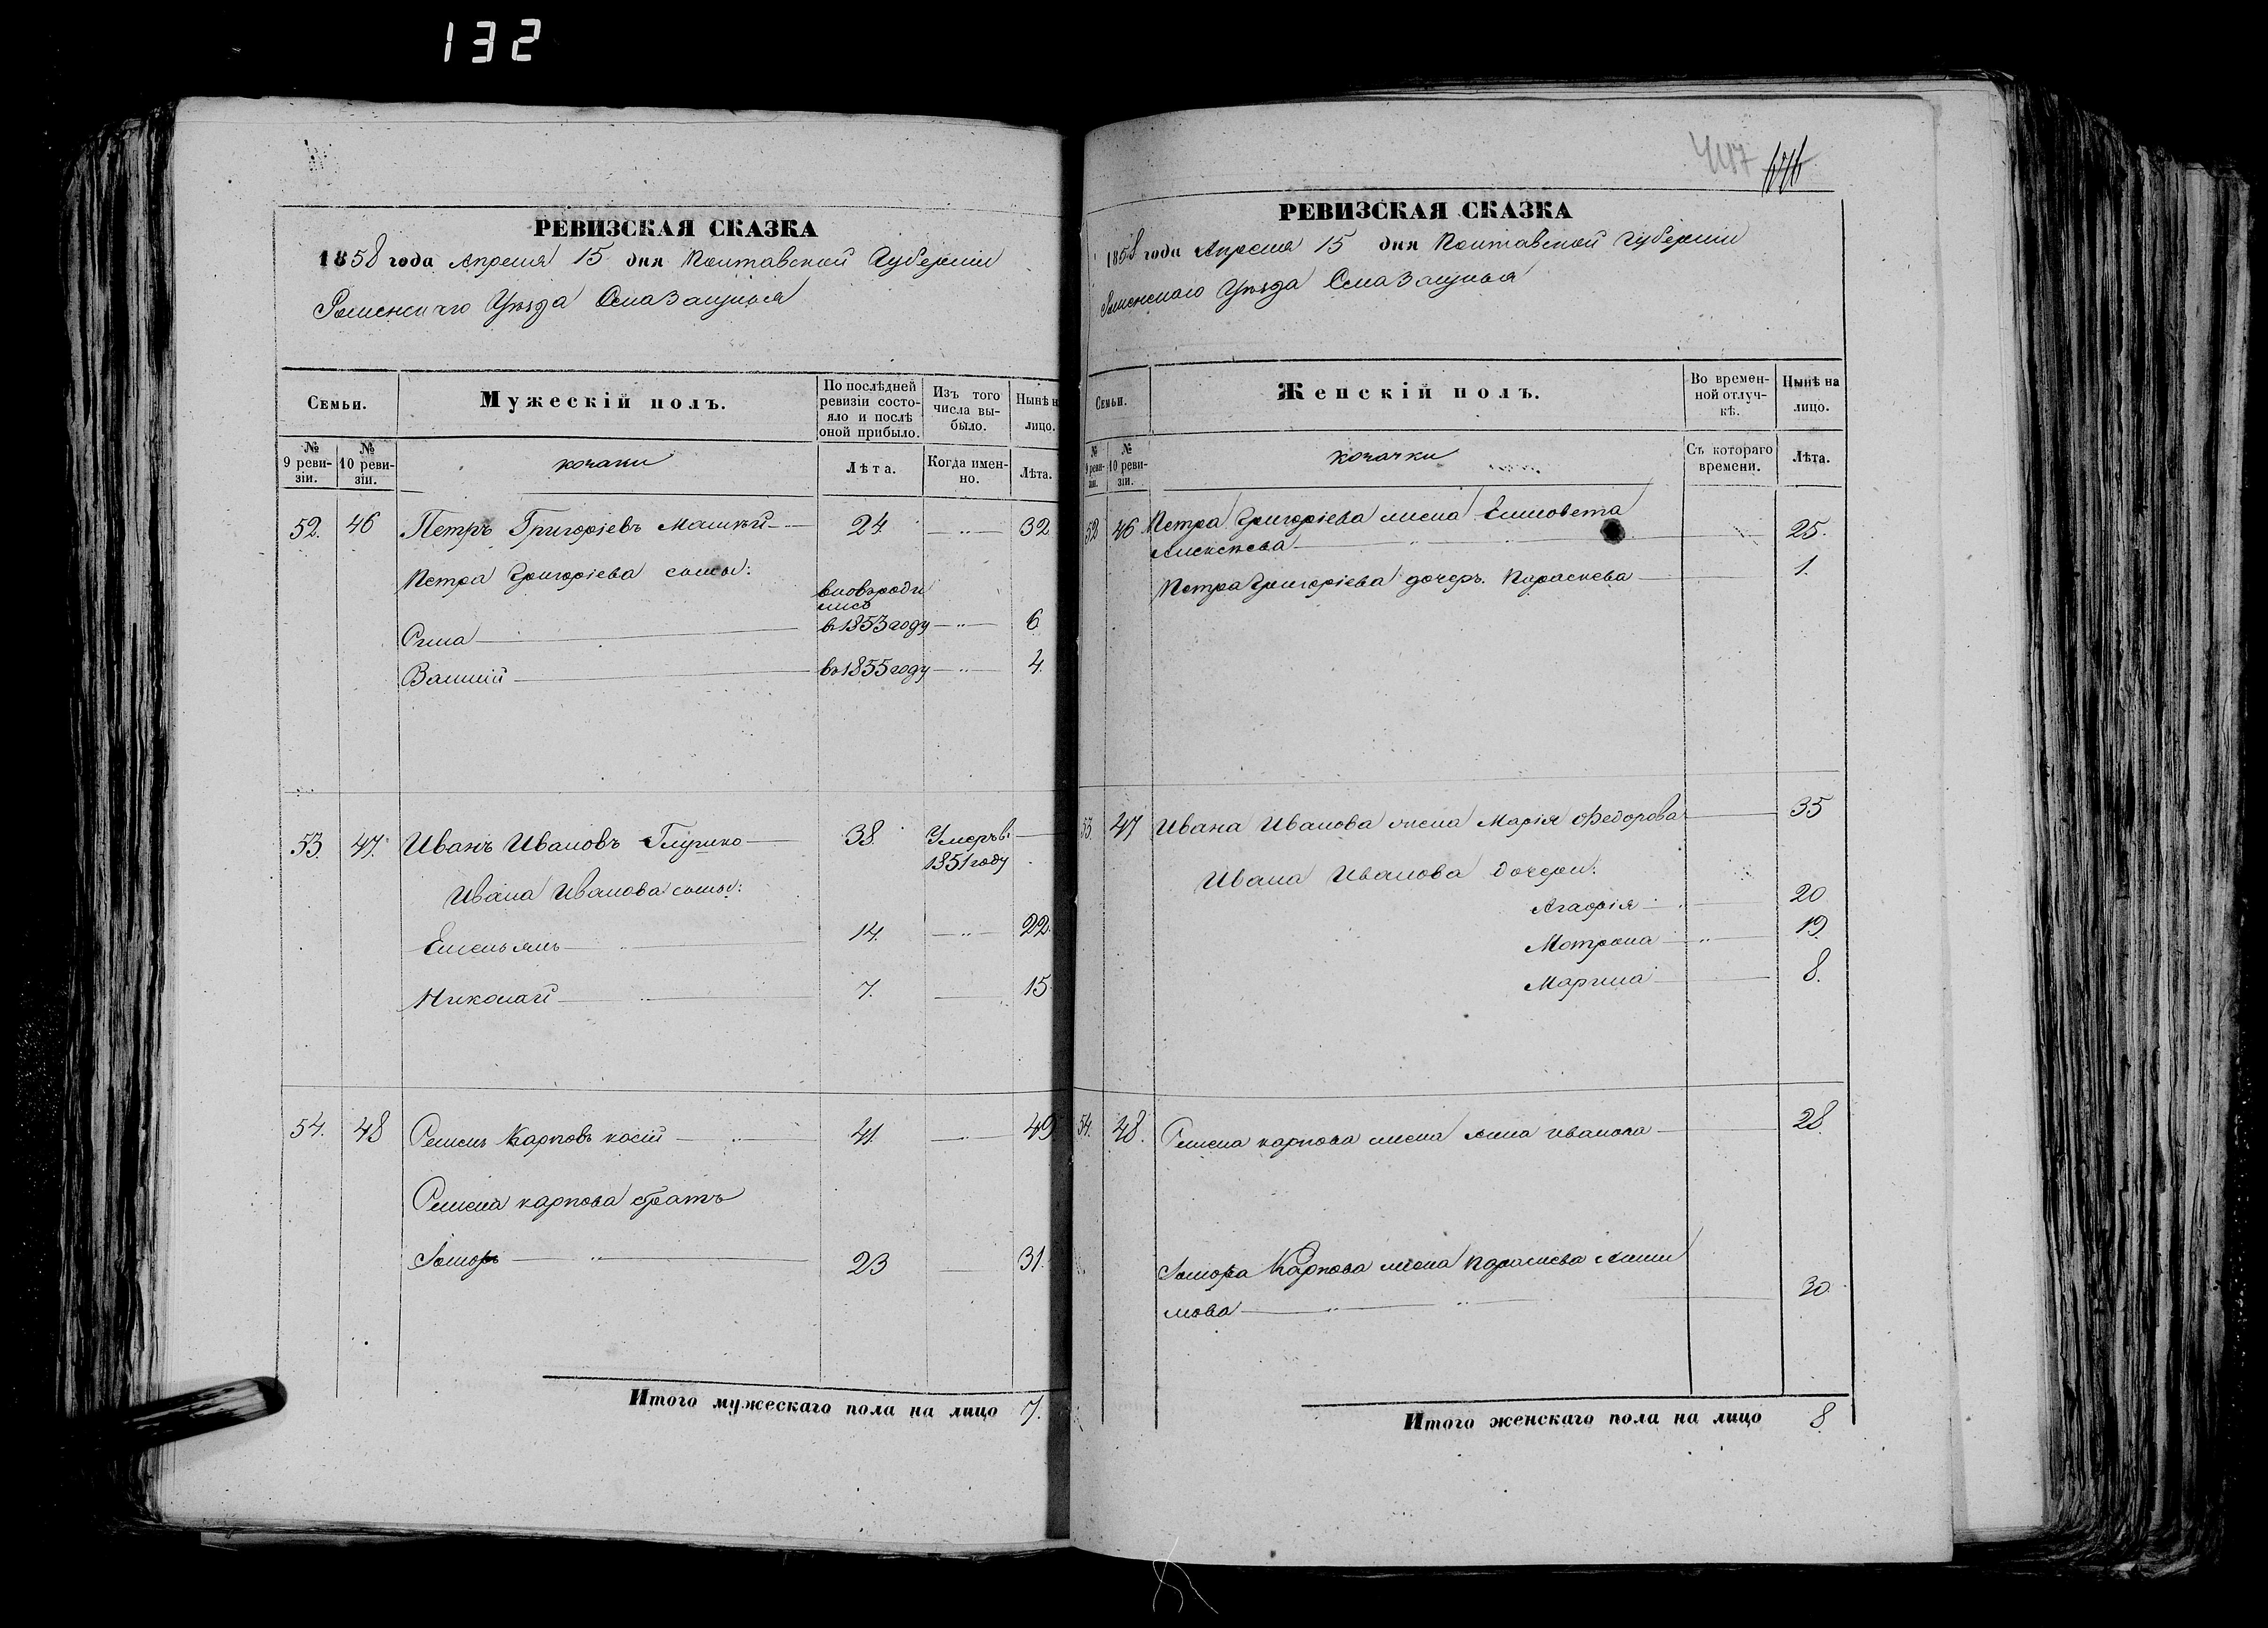 132
РЕВИЗСКАЯ СКАЗКА
1858 года Апреля 15 дня Полтавской Губернии
Роменскаго Уезда Села Защитья
Семьи.
Мужескій полъ.
По послѣдней ревизіи состояло и послѣ оной прибыло.
Изъ того числа выбыло.
Нынѣ на лицо.
№ 9 ревизіи.
№ 10 ревизіи.
козаки
Лѣта.
Когда именно.
Лѣта.
52. 46 Петръ Григоріевъ 24. 32
Петра Григоріева сыны:
вновь родились
в 1853 году 6
Василій в 1855 году 4.
53. 47. Иванъ Ивановъ Глушко 38. Умеръ в 1851 году
Ивана Иванова сыны:
Емельянъ 14. 22.
Николай 7. 15
54. 48 Семенъ Карповъ косій 41. 49
Семена карпова братъ
23 31.
Итого мужескаго пола на лицо 7.
447
РЕВИЗСКАЯ СКАЗКА
1858 года Апреля 15 дня Полтавской Губернии
Роменскаго Уезда Села Защитья
Семьи.
Женскій полъ.
Во временной отлучкѣ.
Нынѣ на лицо.
№ 9 ревизіи.
№ 10 ревизіи.
козачки
Съ котораго времени.
Лѣта.
52 46 Петра Григоріева жена Елисовета
Алексеева 25.
Петра Григоріева дочеръ Параскева 1.
53. 47 Ивана Иванова жена Марія Федорова 35
Ивана Иванова дочери:
Агафія 20
Мотрона 19.
Марина 8.
54. 48. Семена карпова жена Анна иванова 28.
Карпова жена Параскева
30.
Итого женскаго пола на лицо 8